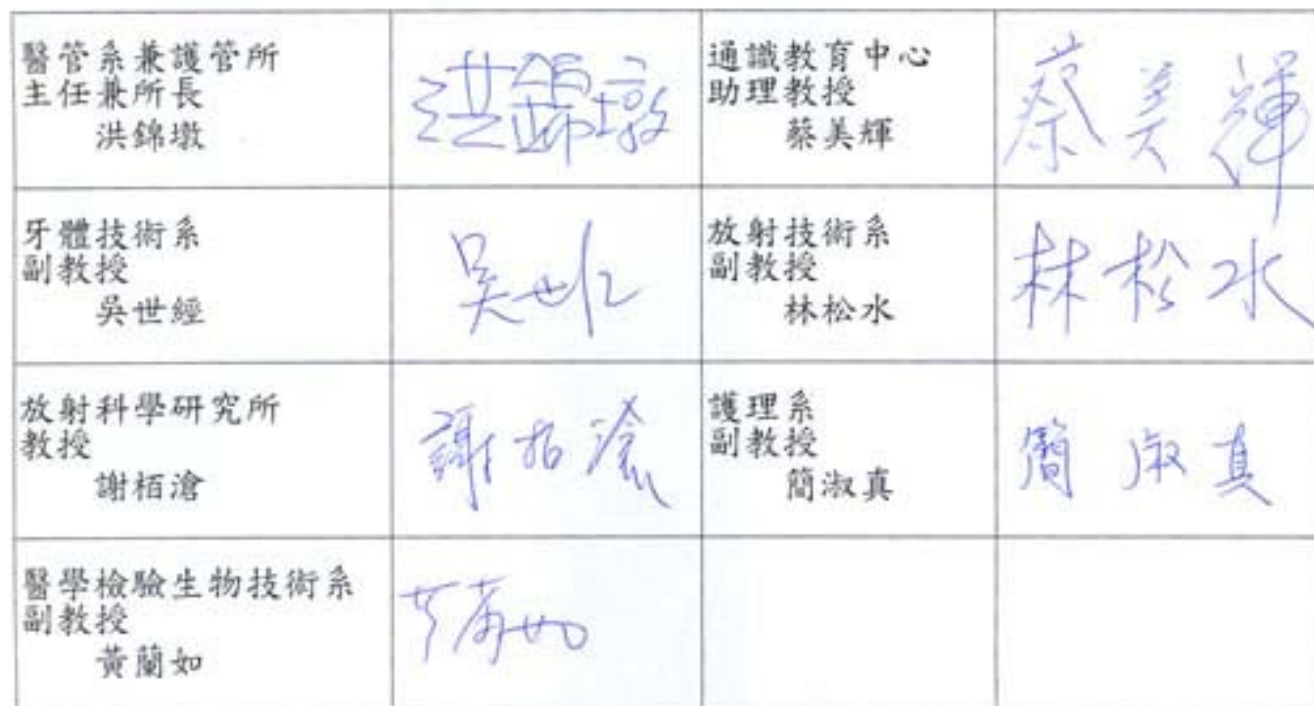 醫管系兼護管所
主任兼所長
洪錦墩
洪錦墩
通識教育中心
助理教授
蔡美輝
蔡美輝
牙體技術系
副教授
吳世經
吳世經
放射技術系
副教授
林松水
林松水
放射科學研究所
教授
謝栢滄
謝栢滄
護理系
副教授
簡淑真
簡淑真
醫學檢驗生物技術系
副教授
黃蘭如
黃蘭如